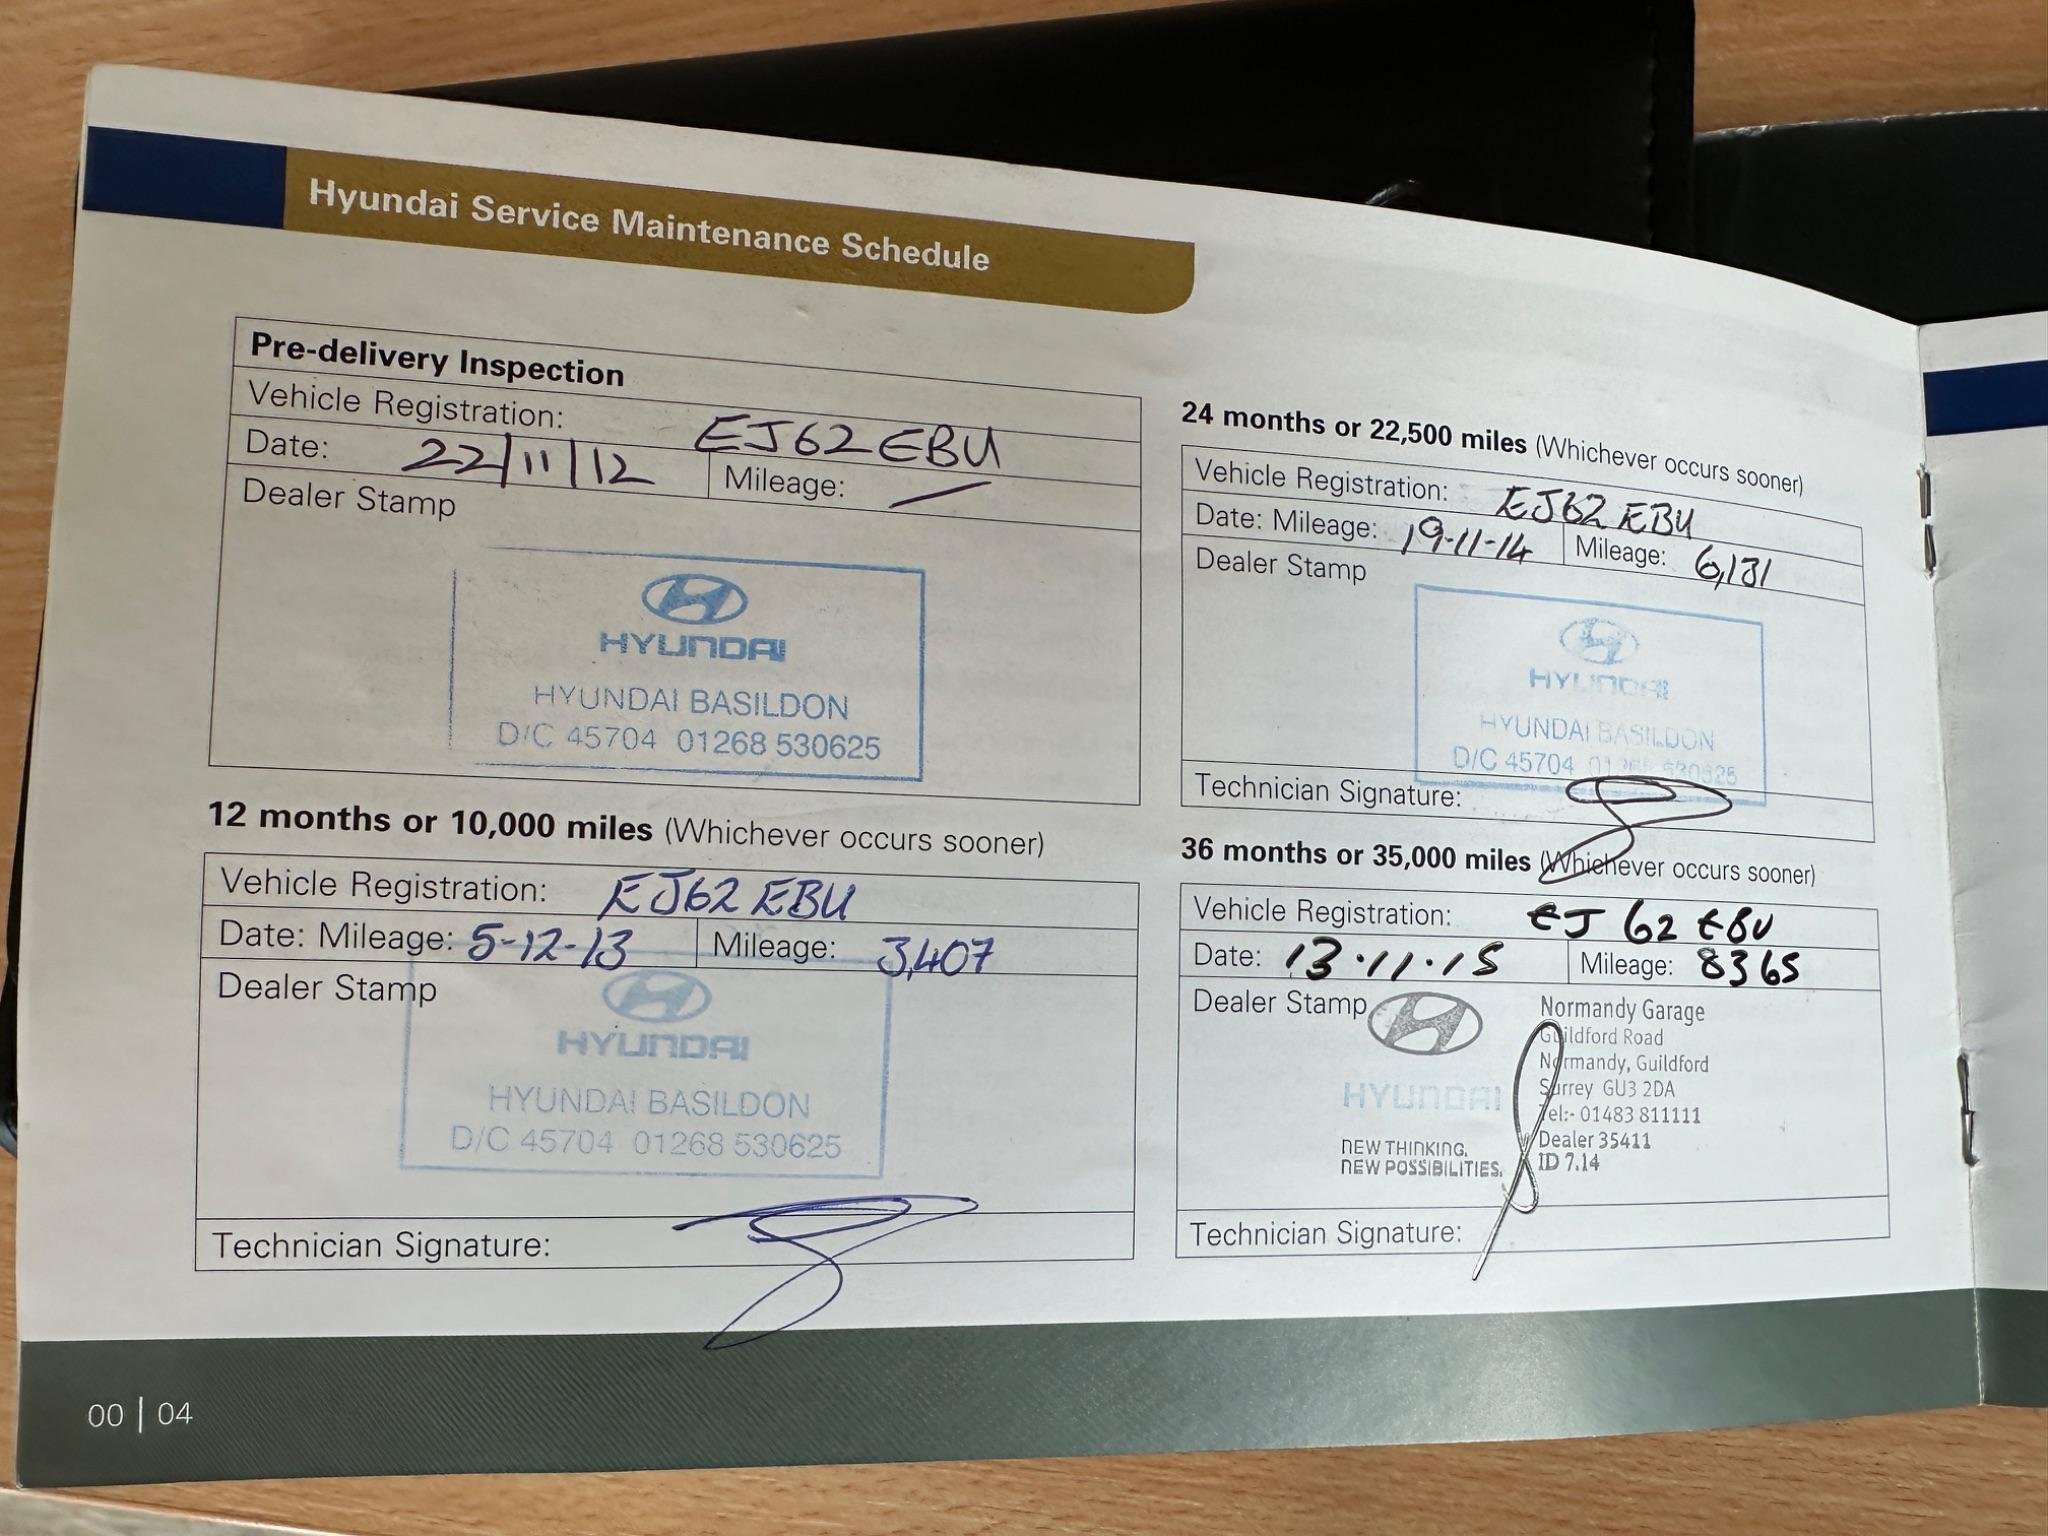 Hyundai Service Maintenance Schedule
Pre-delivery Inspection
Vehicle Registration: EJ62 EBU
Date: 22/11/12 Mileage: —
Dealer Stamp
HYUNDAI
HYUNDAI BASILDON
D/C 45704 01268 530625
12 months or 10,000 miles (Whichever occurs sooner)
Vehicle Registration: EJ62 EBU
Date: Mileage: 5-12-13 Mileage: 3,407
Dealer Stamp
HYUNDAI
HYUNDAI BASILDON
D/C 45704 01268 530625
Technician Signature:
24 months or 22,500 miles (Whichever occurs sooner)
Vehicle Registration: EJ62 EBU
Date: Mileage: 19-11-14 Mileage: 6,131
Dealer Stamp
HYUNDAI
HYUNDAI BASILDON
D/C 45704 01268 530625
Technician Signature:
36 months or 35,000 miles (Whichever occurs sooner)
Vehicle Registration: EJ 62 EBU
Date: 13.11.15 Mileage: 8365
Dealer Stamp
HYUNDAI
NEW THINKING.
NEW POSSIBILITIES.
Normandy Garage
Guildford Road
Normandy, Guildford
Surrey GU3 2DA
Tel:- 01483 811111
Dealer 35411
ID 7.14
Technician Signature:
00 | 04